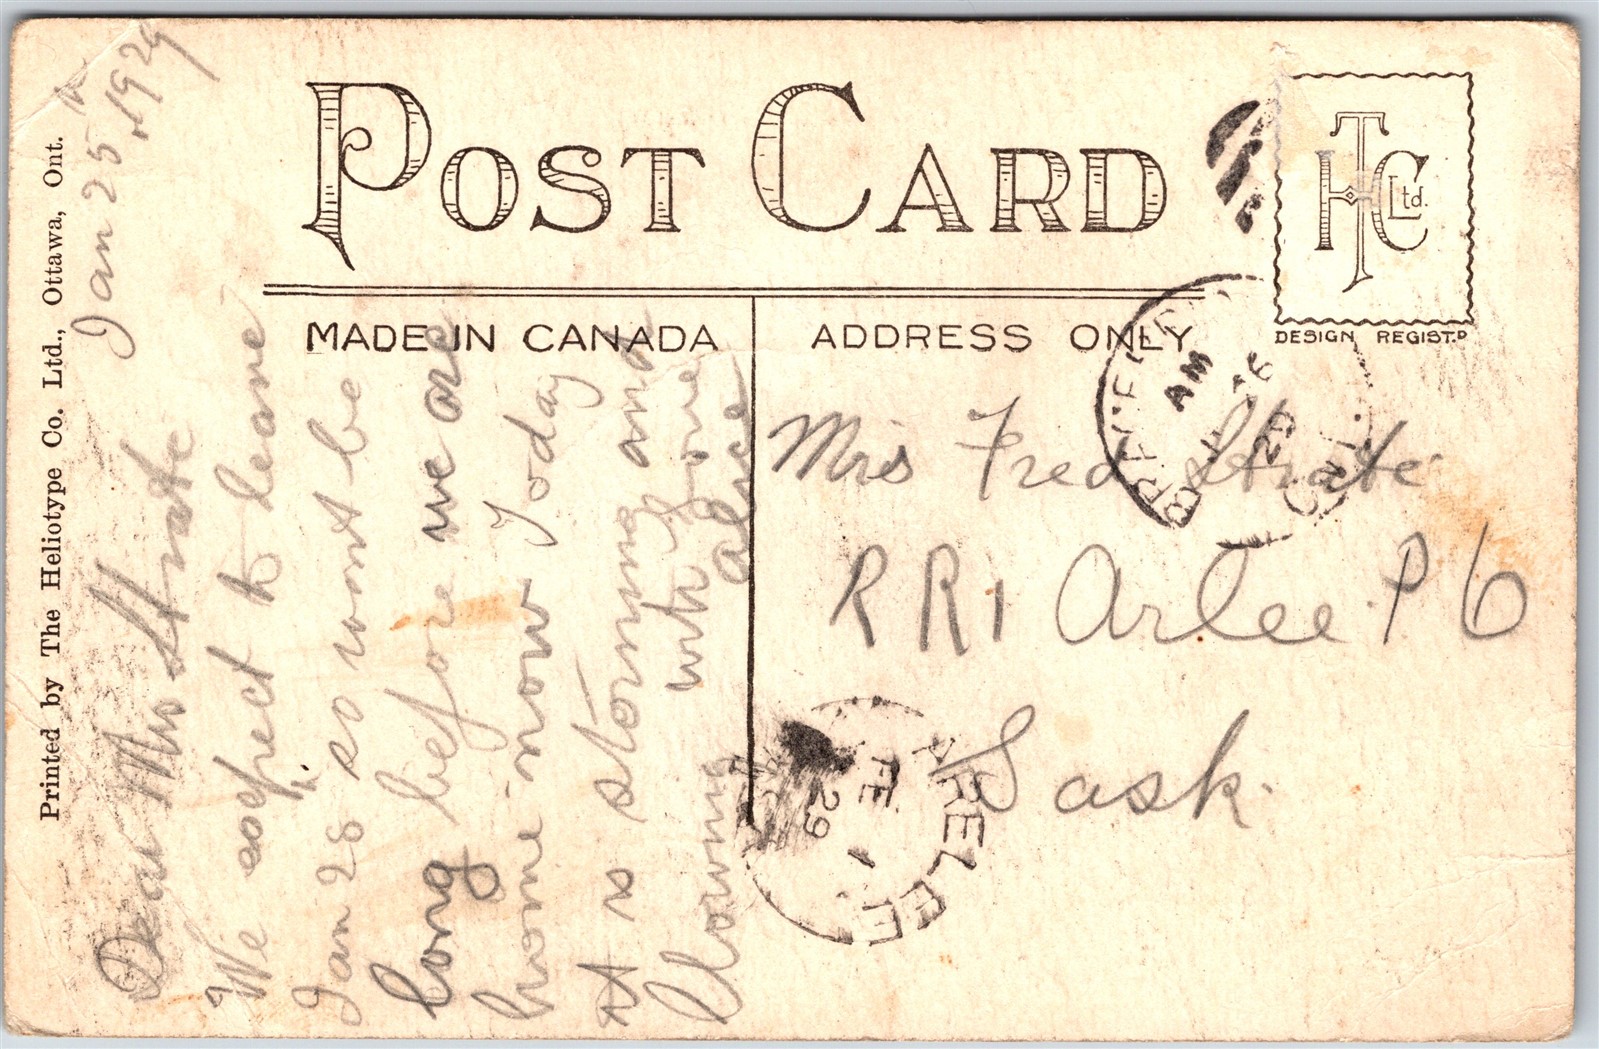 POST CARD
MADE IN CANADA
ADDRESS ONLY
HTC Ltd.
DESIGN REGIST.D
Printed by The Heliotype Co. Ltd., Ottawa, Ont.
Jan 25th 1929
Dear Mrs Strate
We expect to leave
Jan 28 so wont be
long before we are
home now Today
it is storming and
blowing with love
alice
Mrs Fred Strate
R R 1 Arlee P O
Sask.
AM
29
ARELEE
FE 1
29